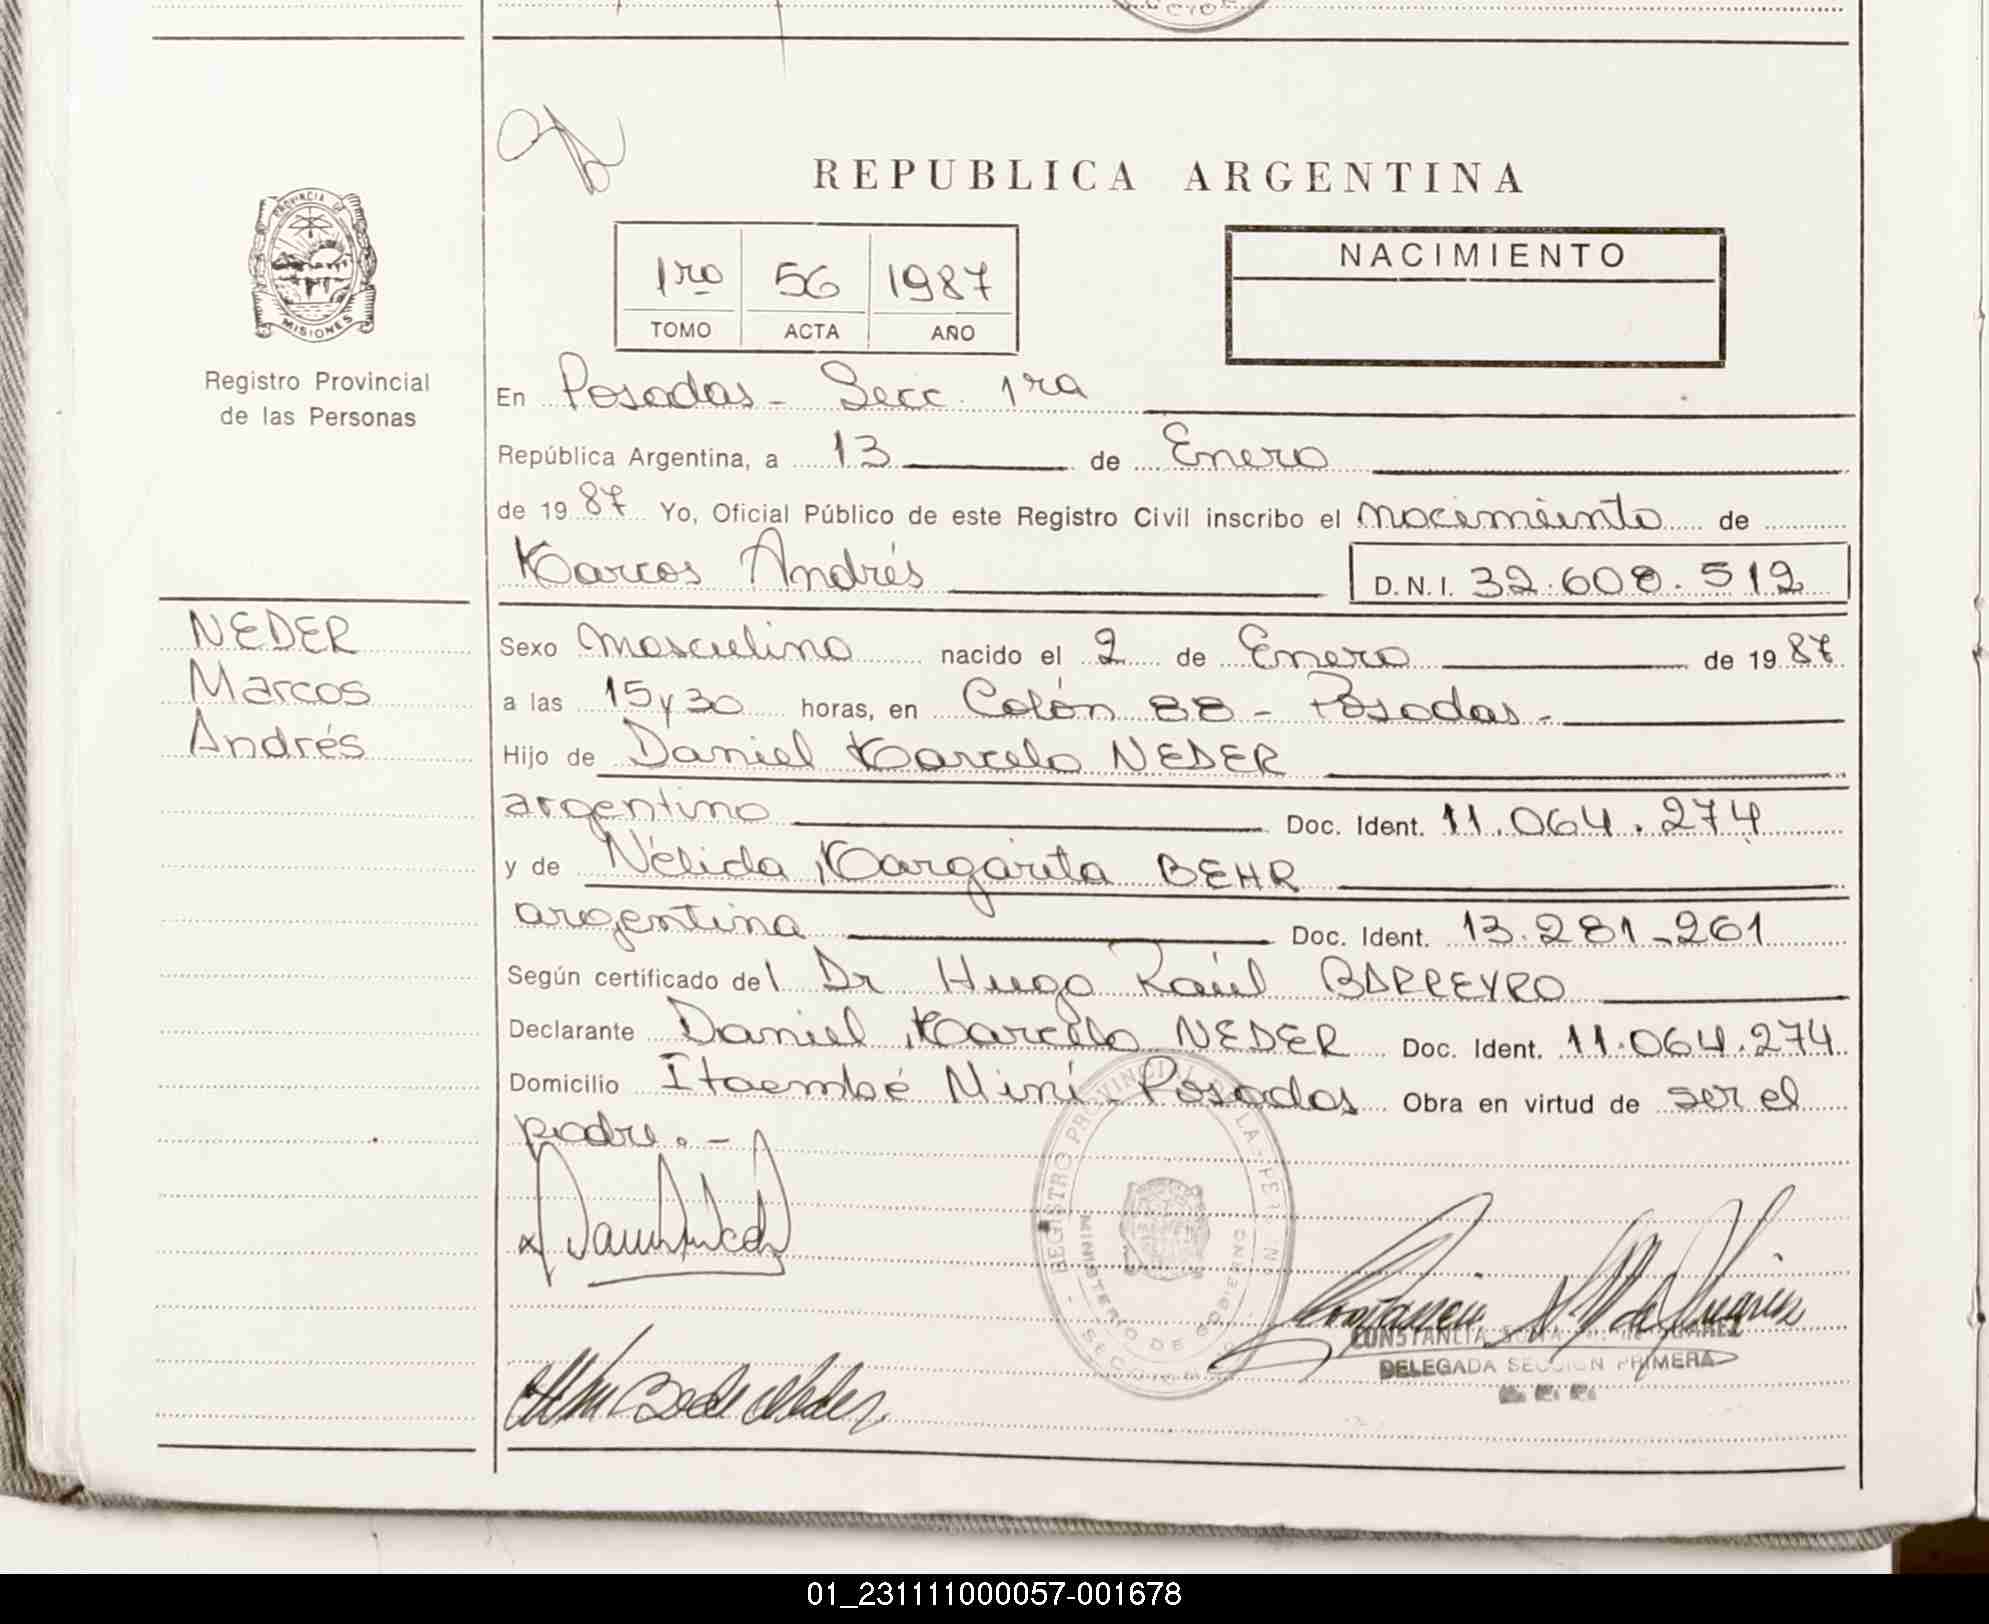 REPUBLICA ARGENTINA
PROVINCIA DE
MISIONES
Registro Provincial
de las Personas
1ro 56 1987
TOMO ACTA AÑO
NACIMIENTO
En Posadas - Secc. 1ra
República Argentina, a 13 de Enero
de 1987 Yo, Oficial Público de este Registro Civil inscribo el nacimiento de
Marcos Andrés D.N.I. 32.608.512
NEDER
Marcos
Andrés
Sexo masculino nacido el 2 de Enero de 1987
a las 15 y 30 horas, en Colón 88 - Posadas -
Hijo de Daniel Marcelo NEDER
argentino Doc. Ident. 11.064.274
y de Nélida Margarita BEHR
argentina Doc. Ident. 13.281-261
Según certificado del Dr Hugo Raúl BARREYRO
Declarante Daniel Marcelo NEDER Doc. Ident. 11.064.274
Domicilio Itaembé Miní - Posadas Obra en virtud de ser el
padre. -
REGISTRO PROVINCIAL DE LA PER
MINISTERIO DE GOBIERNO
CONSTANCIA
DELEGADA SECCION PRIMERA
01_231111000057-001678